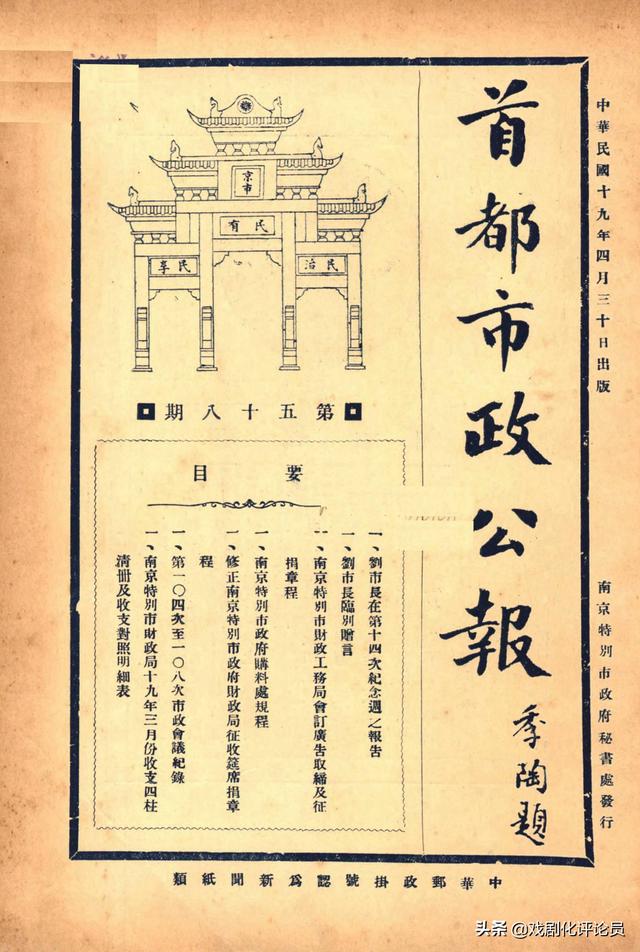 中華民國十九年四月三十日出版
南京特別市政府秘書處發行
首都市政公報
季陶題
京市
民有
民治
民享
第五十八期
要目
一、劉市長在第十四次紀念週之報告
一、劉市長臨別贈言
一、南京特別市財政工務局會訂廣告取締及征
捐章程
一、南京特別市政府購料處規程
一、修正南京特別市政府財政局征收筵席捐章
程
一、第一〇四次至一〇八次市政會議紀錄
一、南京特別市財政局十九年三月份收支四柱
清冊及收支對照明細表
中華郵政掛號認爲新聞紙類
头条 @戏剧化评论员